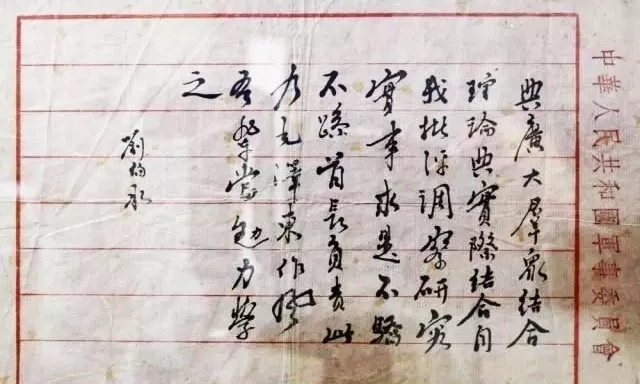 中華人民共和國軍事委員會
與廣大羣衆結合
理論與實際結合自
我批评調察研究
實事求是不驕
不躁首長負責此
乃毛澤東作風
吾輩當勉力學
之
劉伯承